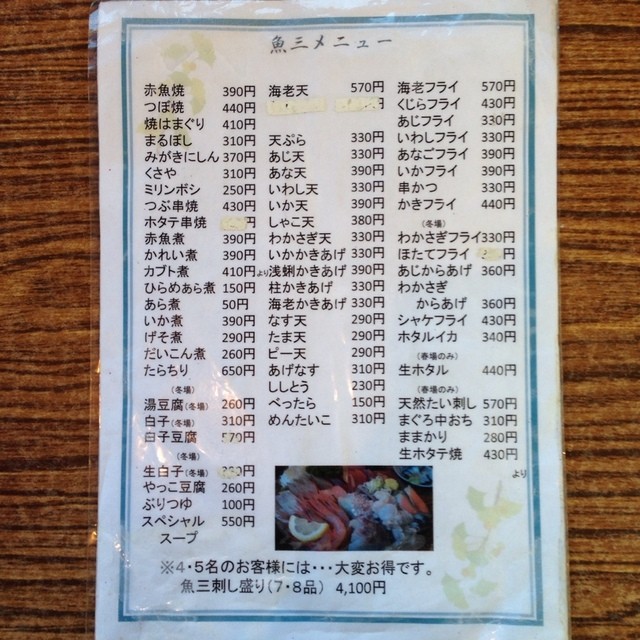 魚三メニュー
赤魚焼 390円
つぼ焼 440円
焼はまぐり 410円
まるぼし 310円
みがきにしん 370円
くさや 310円
ミリンボシ 250円
つぶ串焼 430円
ホタテ串焼 円
赤魚煮 390円
かれい煮 390円
カブト煮 410円より
ひらめあら煮 150円
あら煮 50円
いか煮 390円
げそ煮 290円
だいこん煮 260円
たらちり 650円
(冬場)
湯豆腐(冬場) 260円
白子(冬場) 310円
白子豆腐 570円
(冬場)
生白子(冬場) 円
やっこ豆腐 260円
ぶりつゆ 100円
スペシャル 550円
スープ
海老天 570円
円
天ぷら 330円
あじ天 330円
あな天 330円
いわし天 330円
いか天 330円
しゃこ天 380円
わかさぎ天 330円
いかかきあげ 330円
浅蜊かきあげ 390円
柱かきあげ 330円
海老かきあげ 330円
なす天 290円
たま天 290円
ピー天 290円
あげなす 310円
ししとう 230円
べったら 150円
めんたいこ 310円
海老フライ 570円
くじらフライ 430円
あじフライ 330円
いわしフライ 330円
あなごフライ 390円
いかフライ 390円
串かつ 330円
かきフライ 440円
(冬場)
わかさぎフライ 330円
ほたてフライ 円
あじからあげ 360円
わかさぎ
からあげ 360円
シャケフライ 430円
ホタルイカ 340円
(春場のみ)
生ホタル 440円
(春場のみ)
天然たい刺し 570円
まぐろ中おち 310円
ままかり 280円
生ホタテ焼 430円
より
※4・5名のお客様には・・・大変お得です。
魚三刺し盛り(7・8品) 4,100円